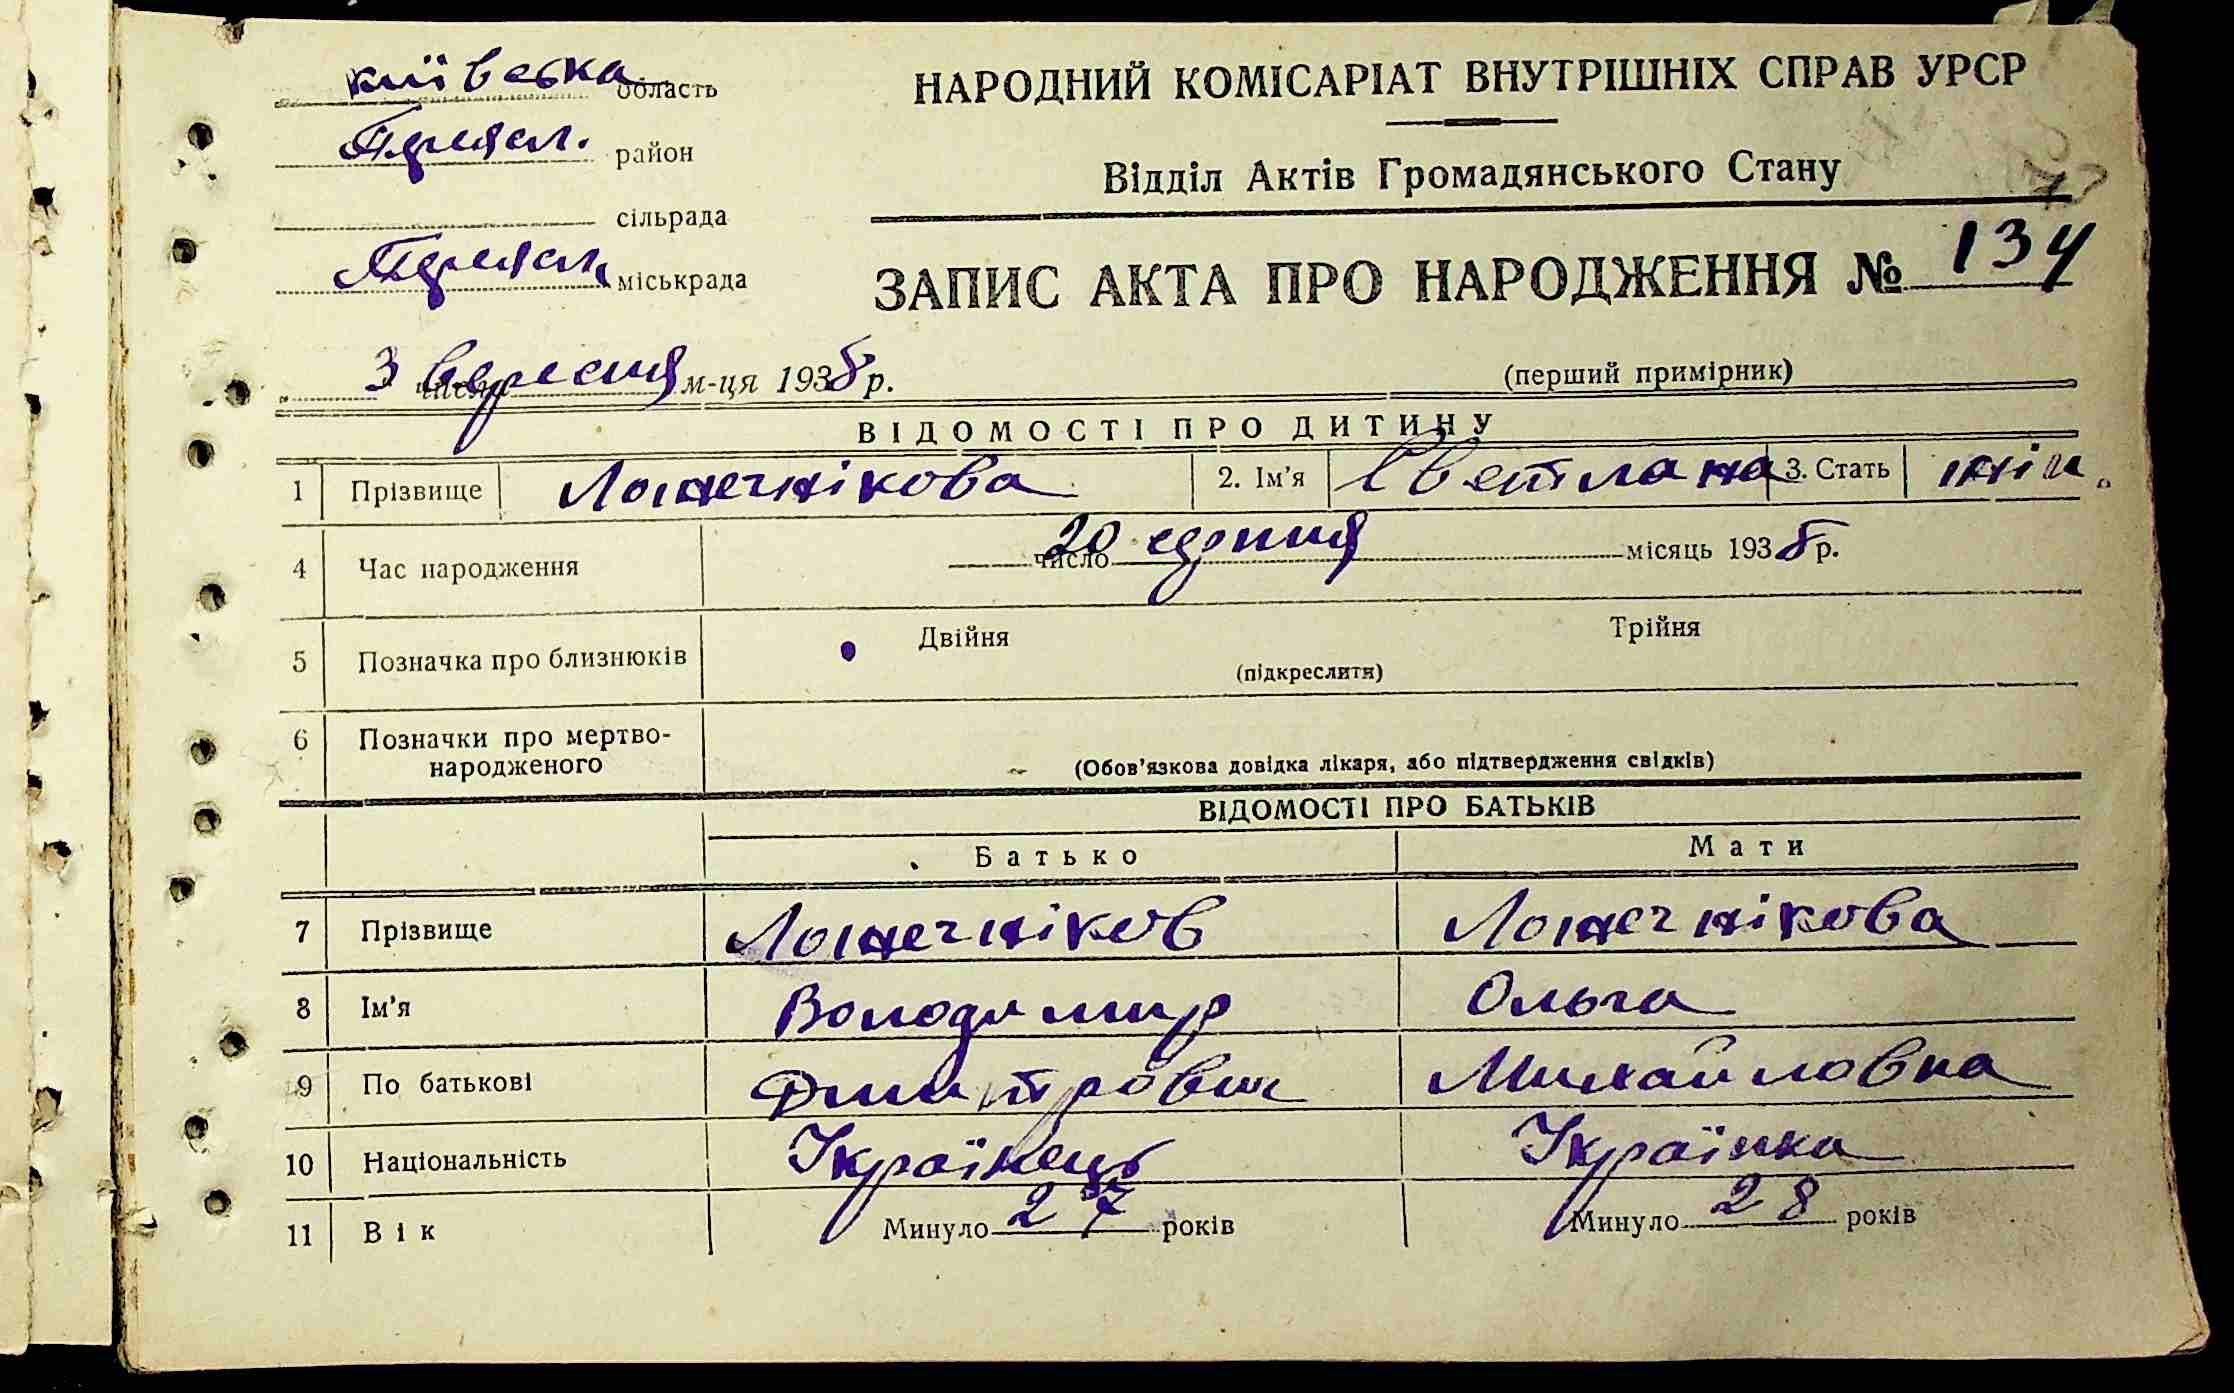 київська область
НАРОДНИЙ КОМІСАРІАТ ВНУТРІШНІХ СПРАВ УРСР
район
Відділ Актів Громадянського Стану
сільрада
міськрада
ЗАПИС АКТА ПРО НАРОДЖЕННЯ № 134
3 числа вересня м-ця 1938 р.
(перший примірник)
ВІДОМОСТІ ПРО ДИТИНУ
1 Прізвище Ложечнікова 2. Ім'я Светлана 3. Стать жін.
4 Час народження 20 число серпня місяць 1938 р.
5 Позначка про близнюків Двійня Трійня
(підкреслити)
6 Позначки про мертво-
народженого (Обов'язкова довідка лікаря, або підтвердження свідків)
ВІДОМОСТІ ПРО БАТЬКІВ
Батько Мати
7 Прізвище Ложечніков Ложечнікова
8 Ім'я Володимир Ольга
9 По батькові Дмитрович Михайловна
10 Національність Українець Українка
11 Вік Минуло 27 років Минуло 28 років